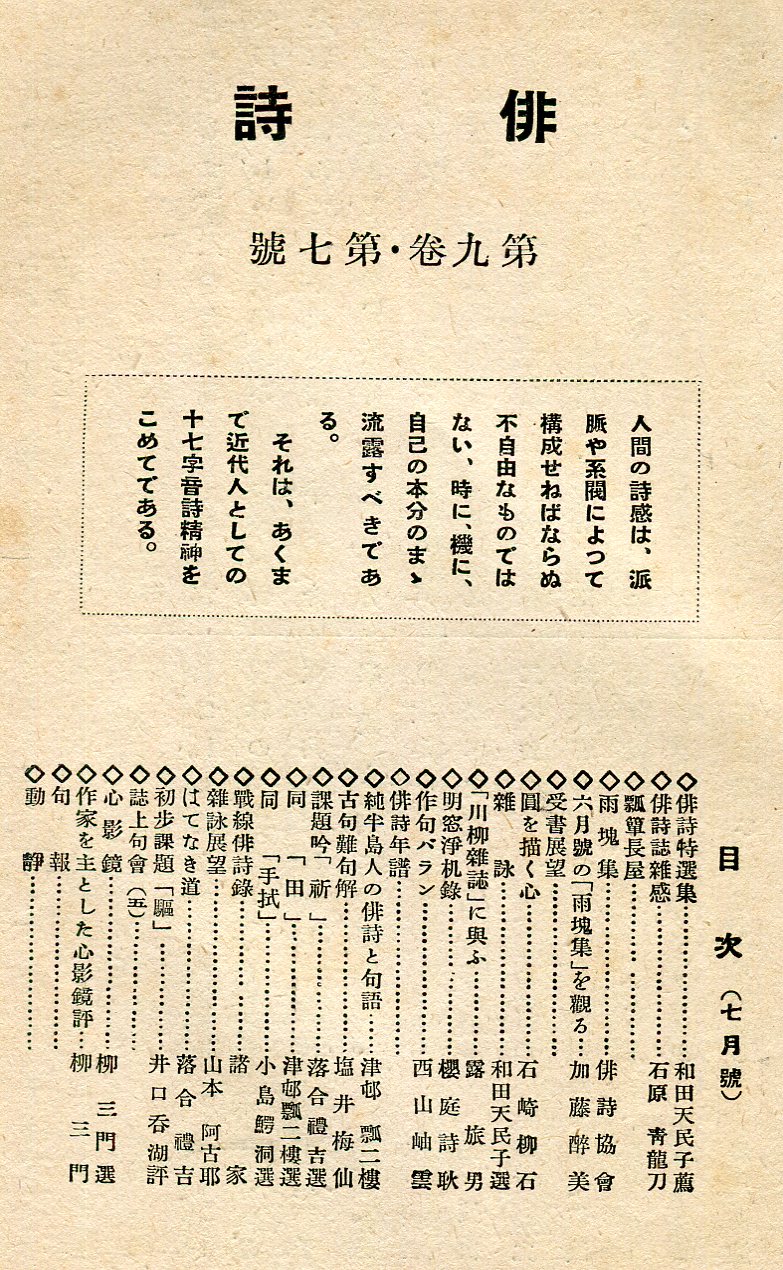 俳詩
第九卷・第七號
人間の詩感は、派
脈や系閥によつて
構成せねばならぬ
不自由なものでは
ない、時に、機に、
自己の本分のまゝ
流露すべきであ
る。
それは、あくま
で近代人としての
十七字音詩精神を
こめてである。
目次（七月號）
◇俳詩特選集……和田天民子薦
◇俳詩誌雜感……石原靑龍刀
◇瓢簞長屋……
◇雨塊集……俳詩協會
◇六月號の「雨塊集」を觀る…加藤醉美
◇受書展望……
◇圓を描く心……石崎柳石
◇雜詠……和田天民子選
◇「川柳雜誌」に與ふ……露旅男
◇明窓淨机錄……櫻庭詩耿
◇作句バラン……西山岫雲
◇俳詩年譜……
◇純半島人の俳詩と句語……津邨瓢二樓
◇古句難句解……塩井梅仙
◇課題吟「祈」……落合禮吉選
◇同「田」……津邨瓢二樓選
◇同「手拭」……小島鰐洞選
◇戰線俳詩錄……諸家
◇雜詠展望……山本阿古耶
◇はてなき道……落合禮吉
◇初步課題「驅」……井口呑湖評
◇誌上句會（五）……
◇心影鏡……柳三門選
◇作家を主とした心影鏡評…柳三門
◇句報……
◇動靜……